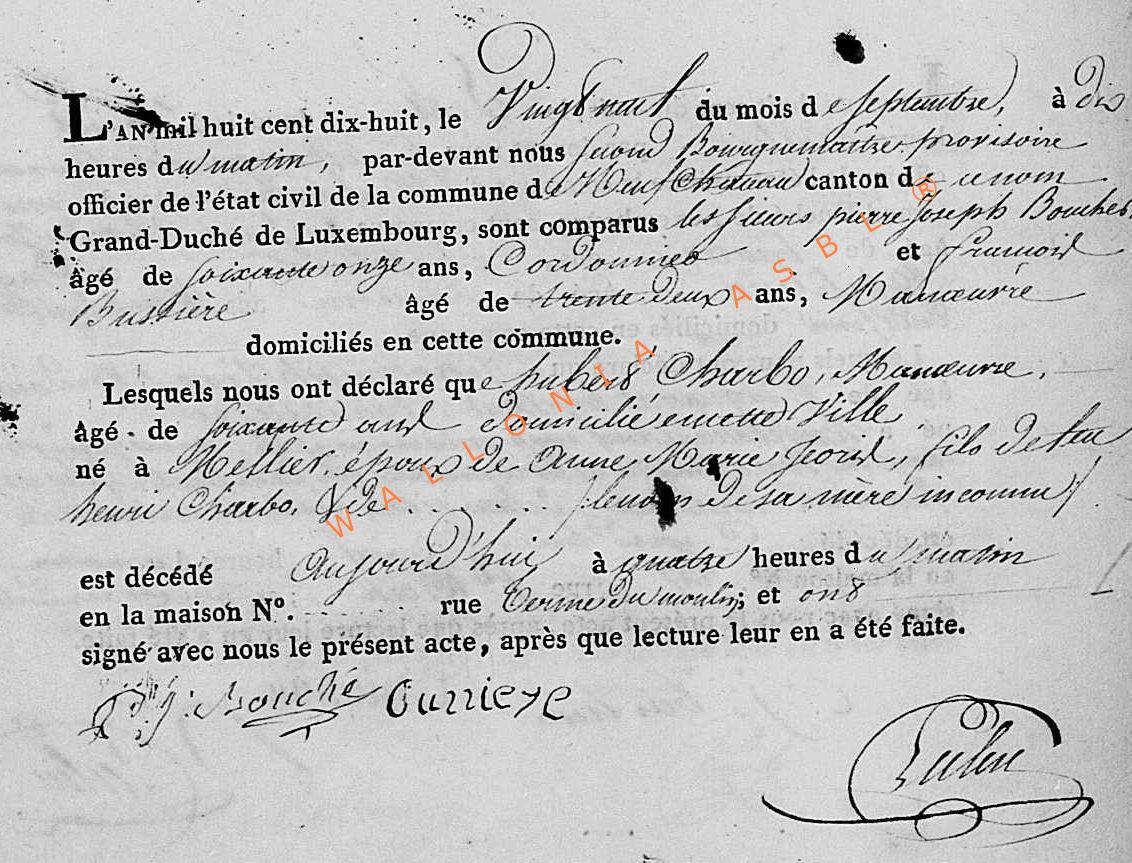 L'AN mil huit cent dix-huit, le Vingt huit du mois de septembre, à dix
heures du matin, par-devant nous second Bourguemaitre provisoire
officier de l'état civil de la commune de Neufchateau canton de ce nom
Grand-Duché de Luxembourg, sont comparus les sieurs pierre Joseph Bouché
âgé de soixante onze ans, Cordonnier et francois
Bussière âgé de trente deux ans, Manœuvre
domiciliés en cette commune.
Lesquels nous ont déclaré que hubert Charbo, Manœuvre,
âgé de soixante ans domicilié en cette Ville
né à Mellier, époux de Anne Marie Jeoris, fils de feu
henri Charbo, & de . . . . . . . . (le nom de sa mère inconnu)
est décédé aujourd'hui à quatre heures du matin
en la maison N°. . . . . . . rue Terme du moulin; et ont
signé avec nous le présent acte, après que lecture leur en a été faite.
P. J. Bouché
WALLONIA ASBL ®